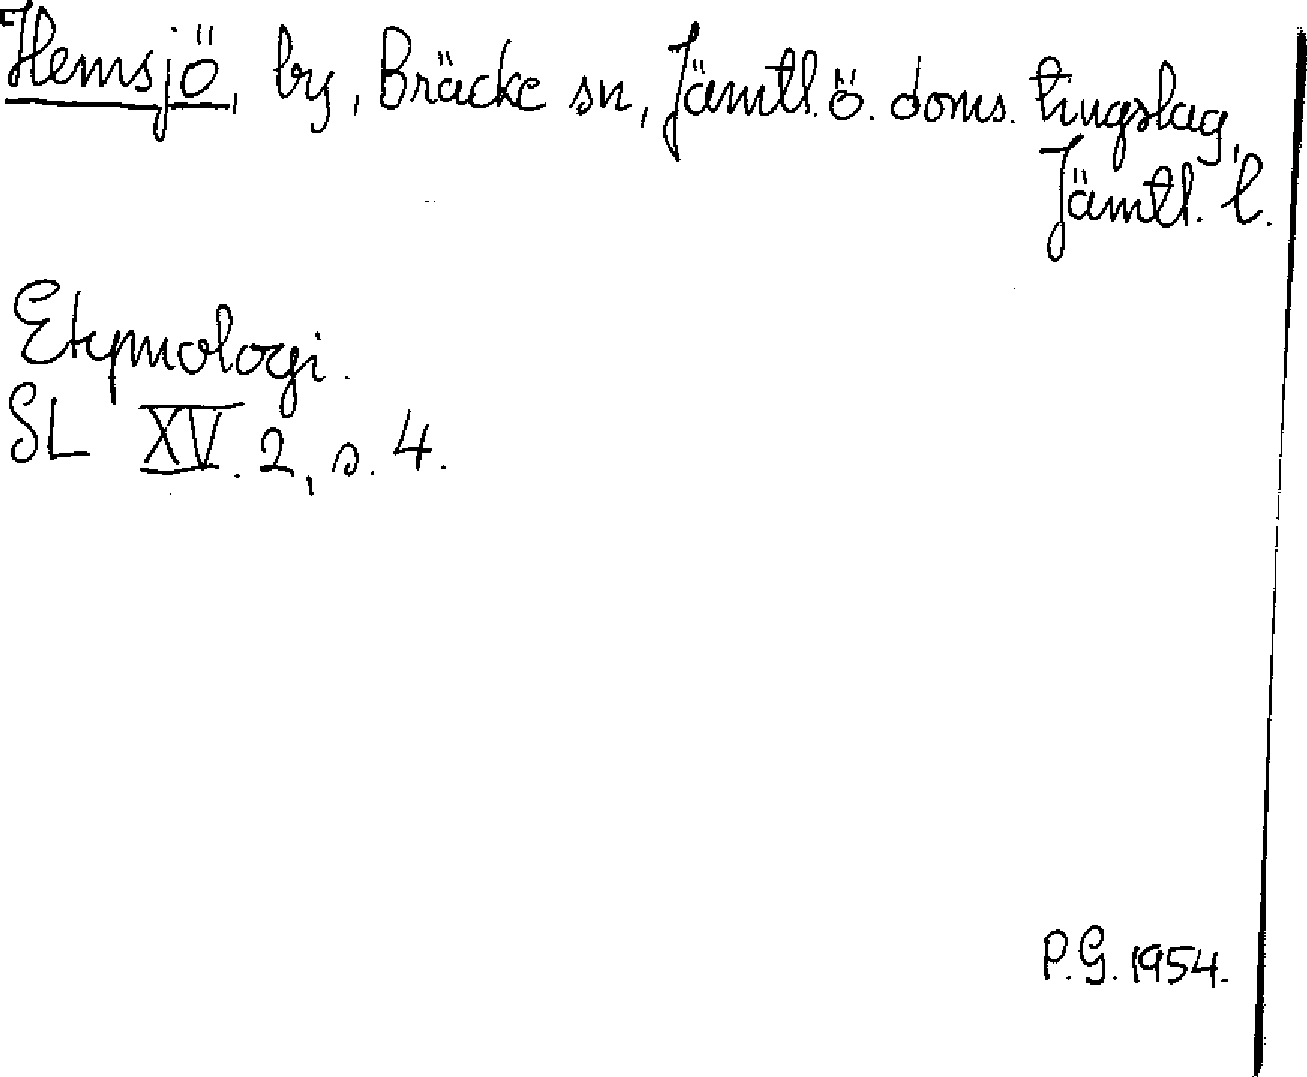 Hemsjö, by, Bräcke sn, Jämtl. ö. doms. tingslag,
Jämtl. l.
Etymologi.
SL XV. 2, s. 4.
P.G. 1954.